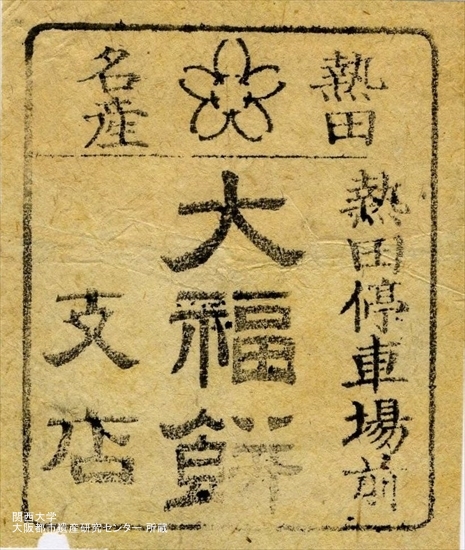 熱田
名産
熱田停車場前
大福餅
支店
関西大学
大阪都市遺産研究センター 所蔵